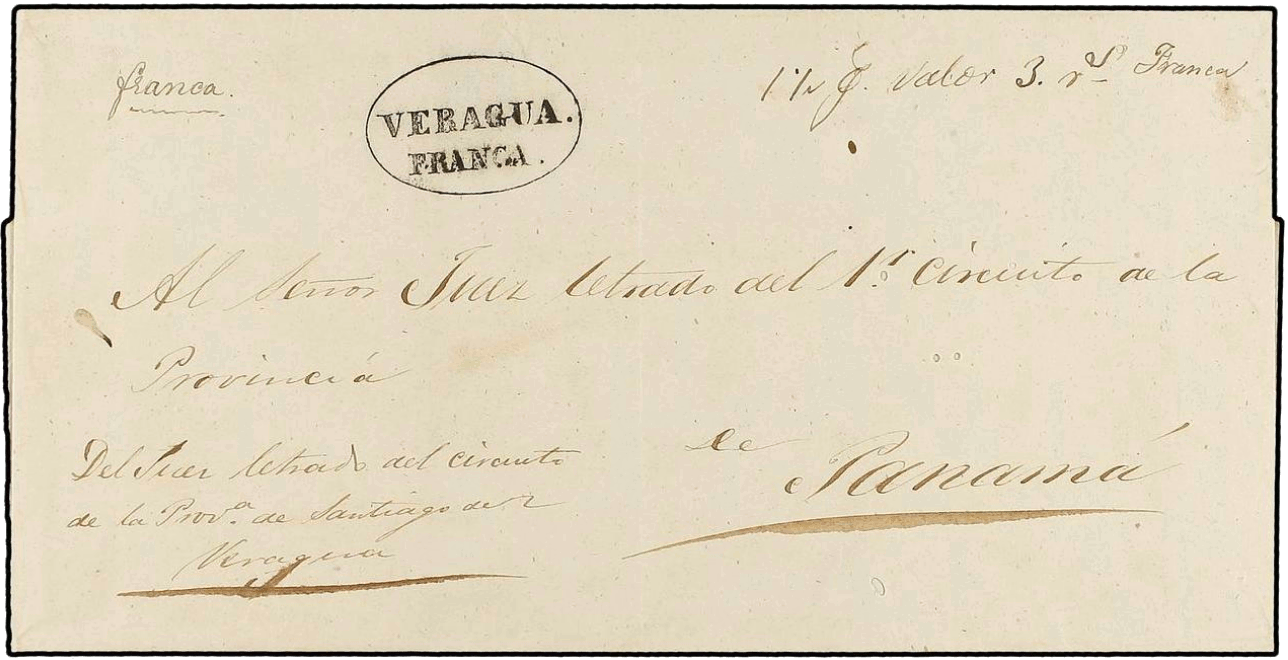 franca.
VERAGUA.
FRANCA.
Valor 3. r.s Franca
Al Señor Juez letrado del 1.r Circuito de la
Provinciá
de
Panamá
Del Juez letrado del circuito
de la Prov.a de Santiago de
Veragua